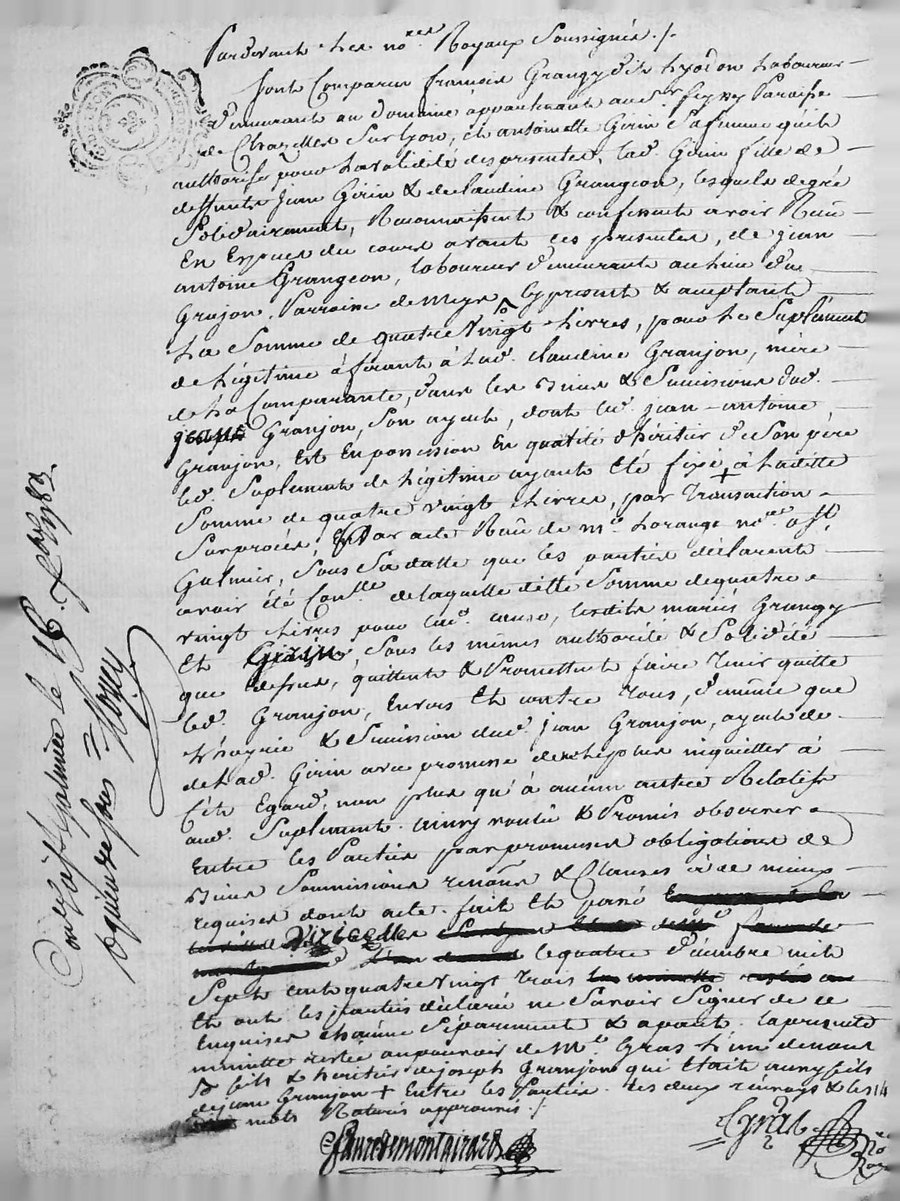 Pardevant Les no.res Royaux Soussignés /.
sont Comparus françois Grangy dit Lyodon Laboureur
demeurant au domaine appartenant au Sr. Paroisse
de Chazelles Sur Lyon, et antoinette Girin Sa femme qu'il
authorise pour La validité des presentes, lad. Girin fille de
deffunts Jean Girin & de Claudine Grangeon, lesquels de gré
Solidairement, Reconnaissent & confessent avoir Reçu
En Espèces du cours avant ces presentes, de jean
antoine Grangeon, laboureur demeurant au Lieu du
Grajon Parroisse de Meys, cy present & acceptant
La Somme de quatre vingt Livres, pour Le Suplément
de Légitime afférant à Lad. Claudine Granjon, mère
de La Comparante, dans les Biens & Successions dud.
Granjon, Son ayeul, dont led. jean-antoine
Granjon, Est En possession En qualité d'héritier de Son père
led. Suplement de Légitime ayant été fixé + à Ladite
Somme de quatre vingt Livres, par Transaction
Sur procès, Par acte Reçu de me. Larange no.re a St.
Galmier, Sous Sa datte que les parties déclarent
avoir été Con.llé de laquelle ditte Somme de quatre
vingt Livres pour lad. cause, lesdits mariés Grangy
Et Girin, Sous les mêmes authorité & Solidité
que dessus, quittent & Promettent faire Tenir quitte
led. Granjon, Envers Et contre Tous, de même que
L'hoyrie & Succession dud. Jean Granjon, ayeul de
de Lad. Girin avec promesse de ne les plus inquietter à
Cet Egard, non plus qu'à aucun autre Relatif
aud. Suplement. ainsy voulu & Promis observer
Entre les Parties par promesses obligations de
Biens Soummissions renons. & Clauses à ce mieux
requises dont acte. fait Et passé
Viricelles
le quatre décembre mil
Sept cent quatre vingt Trois
Et ont les parties déclaré ne Savoir Signer de ce
Enquises chacune Séparément & apart. La presente
minutte restée au pouvoir de Me. Gras L'un de nous
fils & héritier de joseph Granjon qui Etait aussy fils
de jean Granjon + Entre les Parties. Les deux renvoys & les 14
mots Raturés approuvés /.
Faure de montairard
Gras
no.re
Roy.
Con.lé à St. galmier le 16. Xbre 1783.